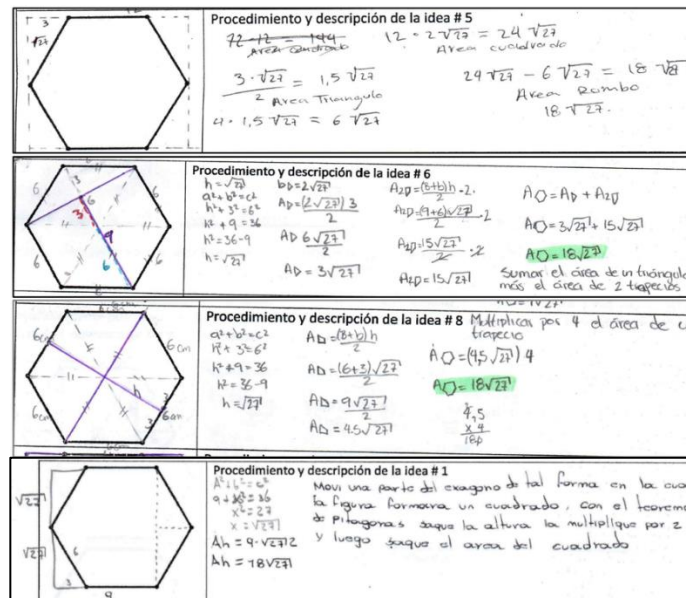 3
√27
Procedimiento y descripción de la idea # 5
72 · 12 = 144
Area cuadrado
12 · 2√27 = 24√27
Area cuadrado
3 · √27 = 1,5 √27
2
Area Triangulo
4 · 1,5 √27 = 6 √27
24 √27 - 6 √27 = 18
Area Rombo
18 √27.
6
6
6
6
3
6
3
9
6
Procedimiento y descripción de la idea # 6
h = √27
a²+b²=c²
h²+3²=6²
h² + 9 = 36
h² = 36-9
h = √27
b▷ = 2√27
A▷ = (2√27) 3
2
A▷ 6√27
2
A▷ = 3√27
A2▷ = (B+b)h · 2
2
A2▷ = (9+6)√27 · 2
2
A2▷ = 15√27 · 2
2
A2▷ = 15√27
A⬡ = A▷ + A2▷
A⬡ = 3√27 + 15√27
A⬡ = 18√27
sumar el área de un triángulo
más el área de 2 trapecios
6cm
6cm
6cm
6cm
h
3
3
Procedimiento y descripción de la idea # 8
Multiplicar por 4 el área de
trapecio
a²+b²=c²
h²+3²=6²
h²+9=36
h²=36-9
h=√27
A▷ = (B+b)h
2
A▷ = (6+3)√27
2
A▷ = 9√27
2
A▷ = 4.5√27
A⬡ = (4,5 √27) 4
A⬡ = 18√27
4,5
x 4
180
√27
√27
6
3
9
Procedimiento y descripción de la idea # 1
A²+b²=c²
9+x²=36
x²=27
x = √27
Ah = 9·√27 2
Ah = 18√27
Movi una parte del exagono de tal forma en la
la figura formara un cuadrado, con el
de pitagoras saque la altura la multiplique por 2
y luego saque el area del cuadrado